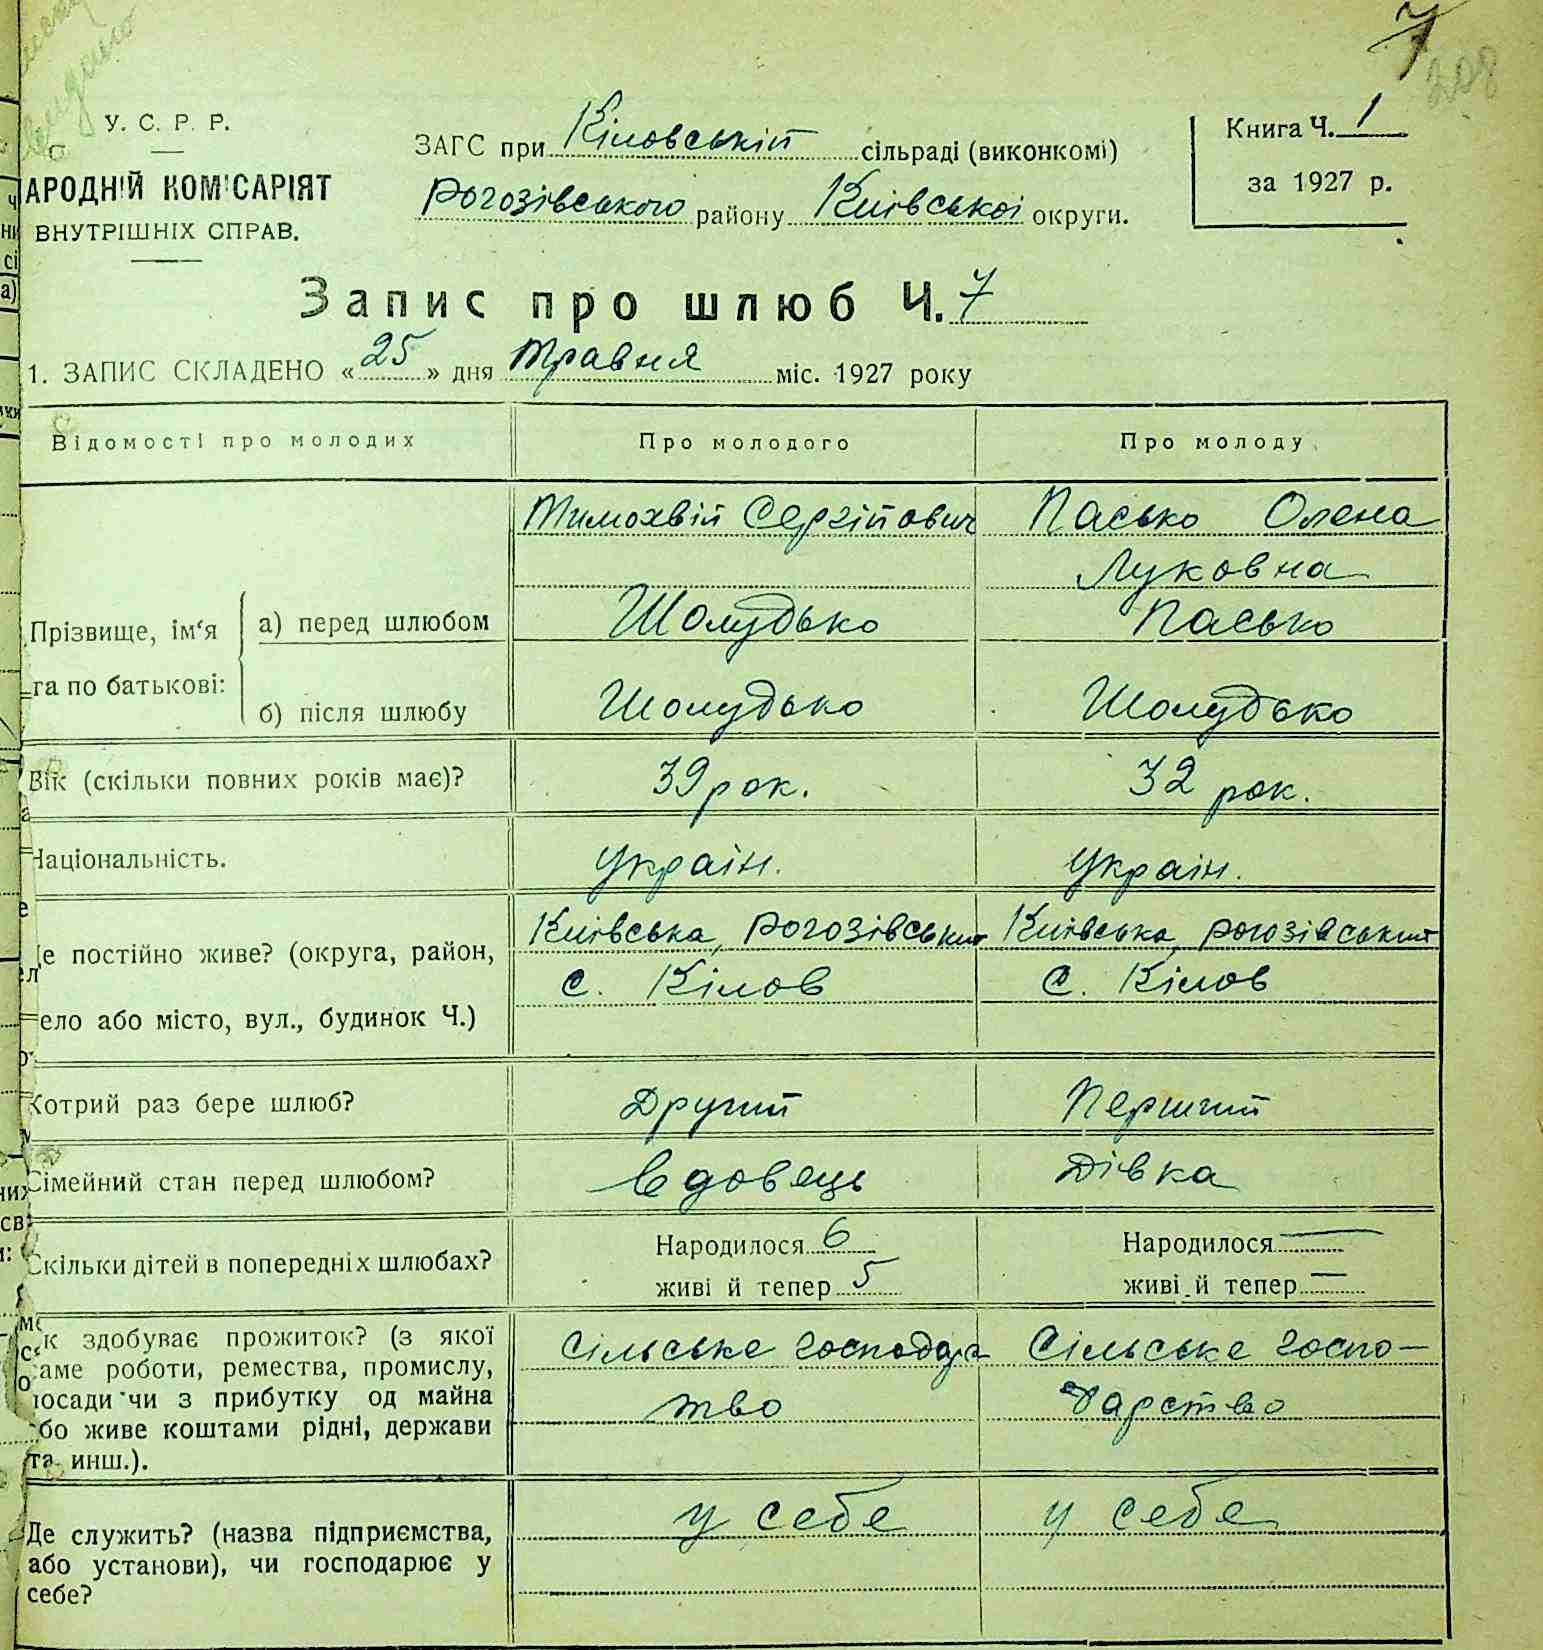 7
208
У. С. Р. Р.
АРОДНІЙ КОМІСАРІЯТ
ВНУТРІШНІХ СПРАВ.
ЗАГС при Кіловській сільраді (виконкомі)
Рогозівського району Київської округи.
Книга Ч. 1
за 1927 р.
Запис про шлюб Ч. 7
1. ЗАПИС СКЛАДЕНО « 25 » дня травня міс. 1927 року
Відомості про молодих Про молодого Про молоду
Тимохвій Сергійович Пасько Олена
Луковна
Прізвище, ім'я та по батькові: а) перед шлюбом Шолудько Пасько
б) після шлюбу Шолудько Шолудько
Вік (скільки повних років має)? 39 рок. 32 рок.
Національність. Україн. Україн.
е постійно живе? (округа, район, Київська, Рогозівський Київська, Рогозівський
ело або місто, вул., будинок Ч.) с. Кілов с. Кілов
Котрий раз бере шлюб? Другий Перший
Сімейний стан перед шлюбом? вдовець Дівка
Скільки дітей в попередніх шлюбах? Народилося 6 Народилося —
живі й тепер 5 живі й тепер —
к здобуває прожиток? (з якої Сільське господарс Сільське госпо-
аме роботи, ремества, промислу,
посади чи з прибутку од майна тво дарство
бо живе коштами рідні, держави
та инш.).
Де служить? (назва підприємства, у себе у себе
або установи), чи господарює у
себе?